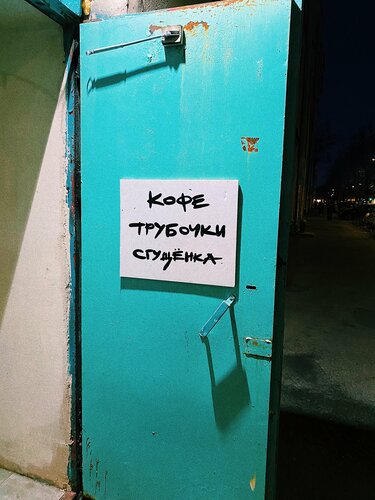 КОФЕ
ТРУБОЧКИ
СГУЩЁНКА